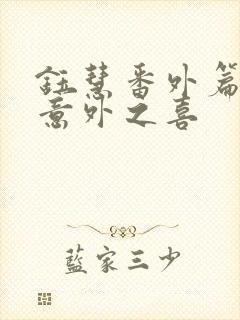 鈺慧番外篇
意外之喜
藍家三少